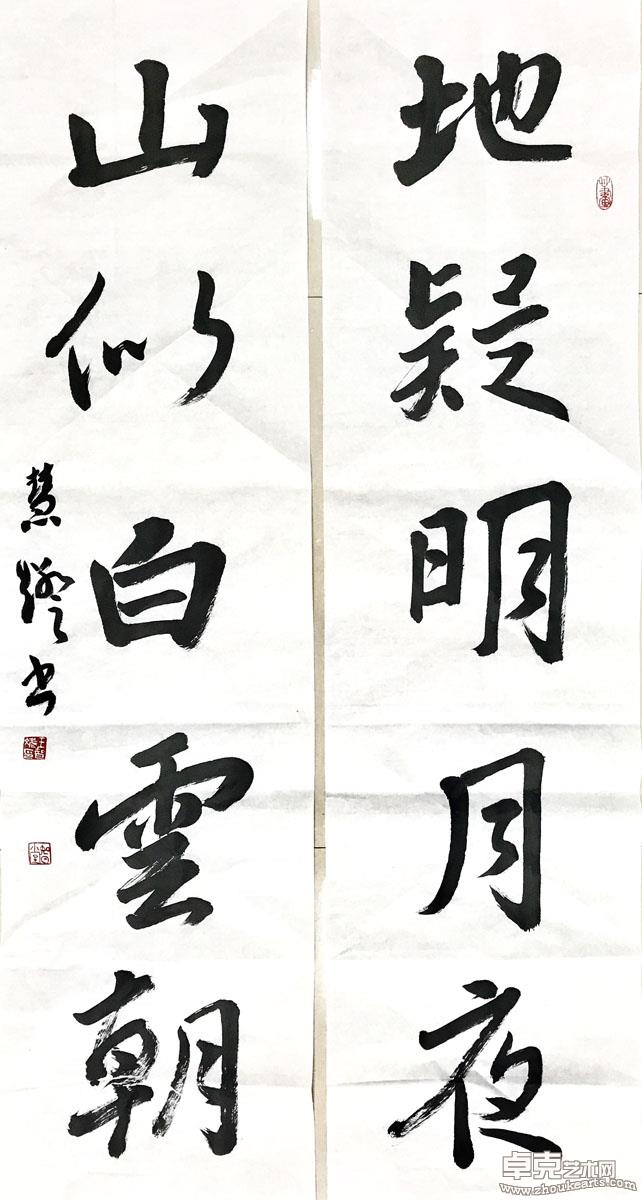 地疑明月夜
山似白雲朝
慧燈书
卓克艺术网
www.zhoukearts.com